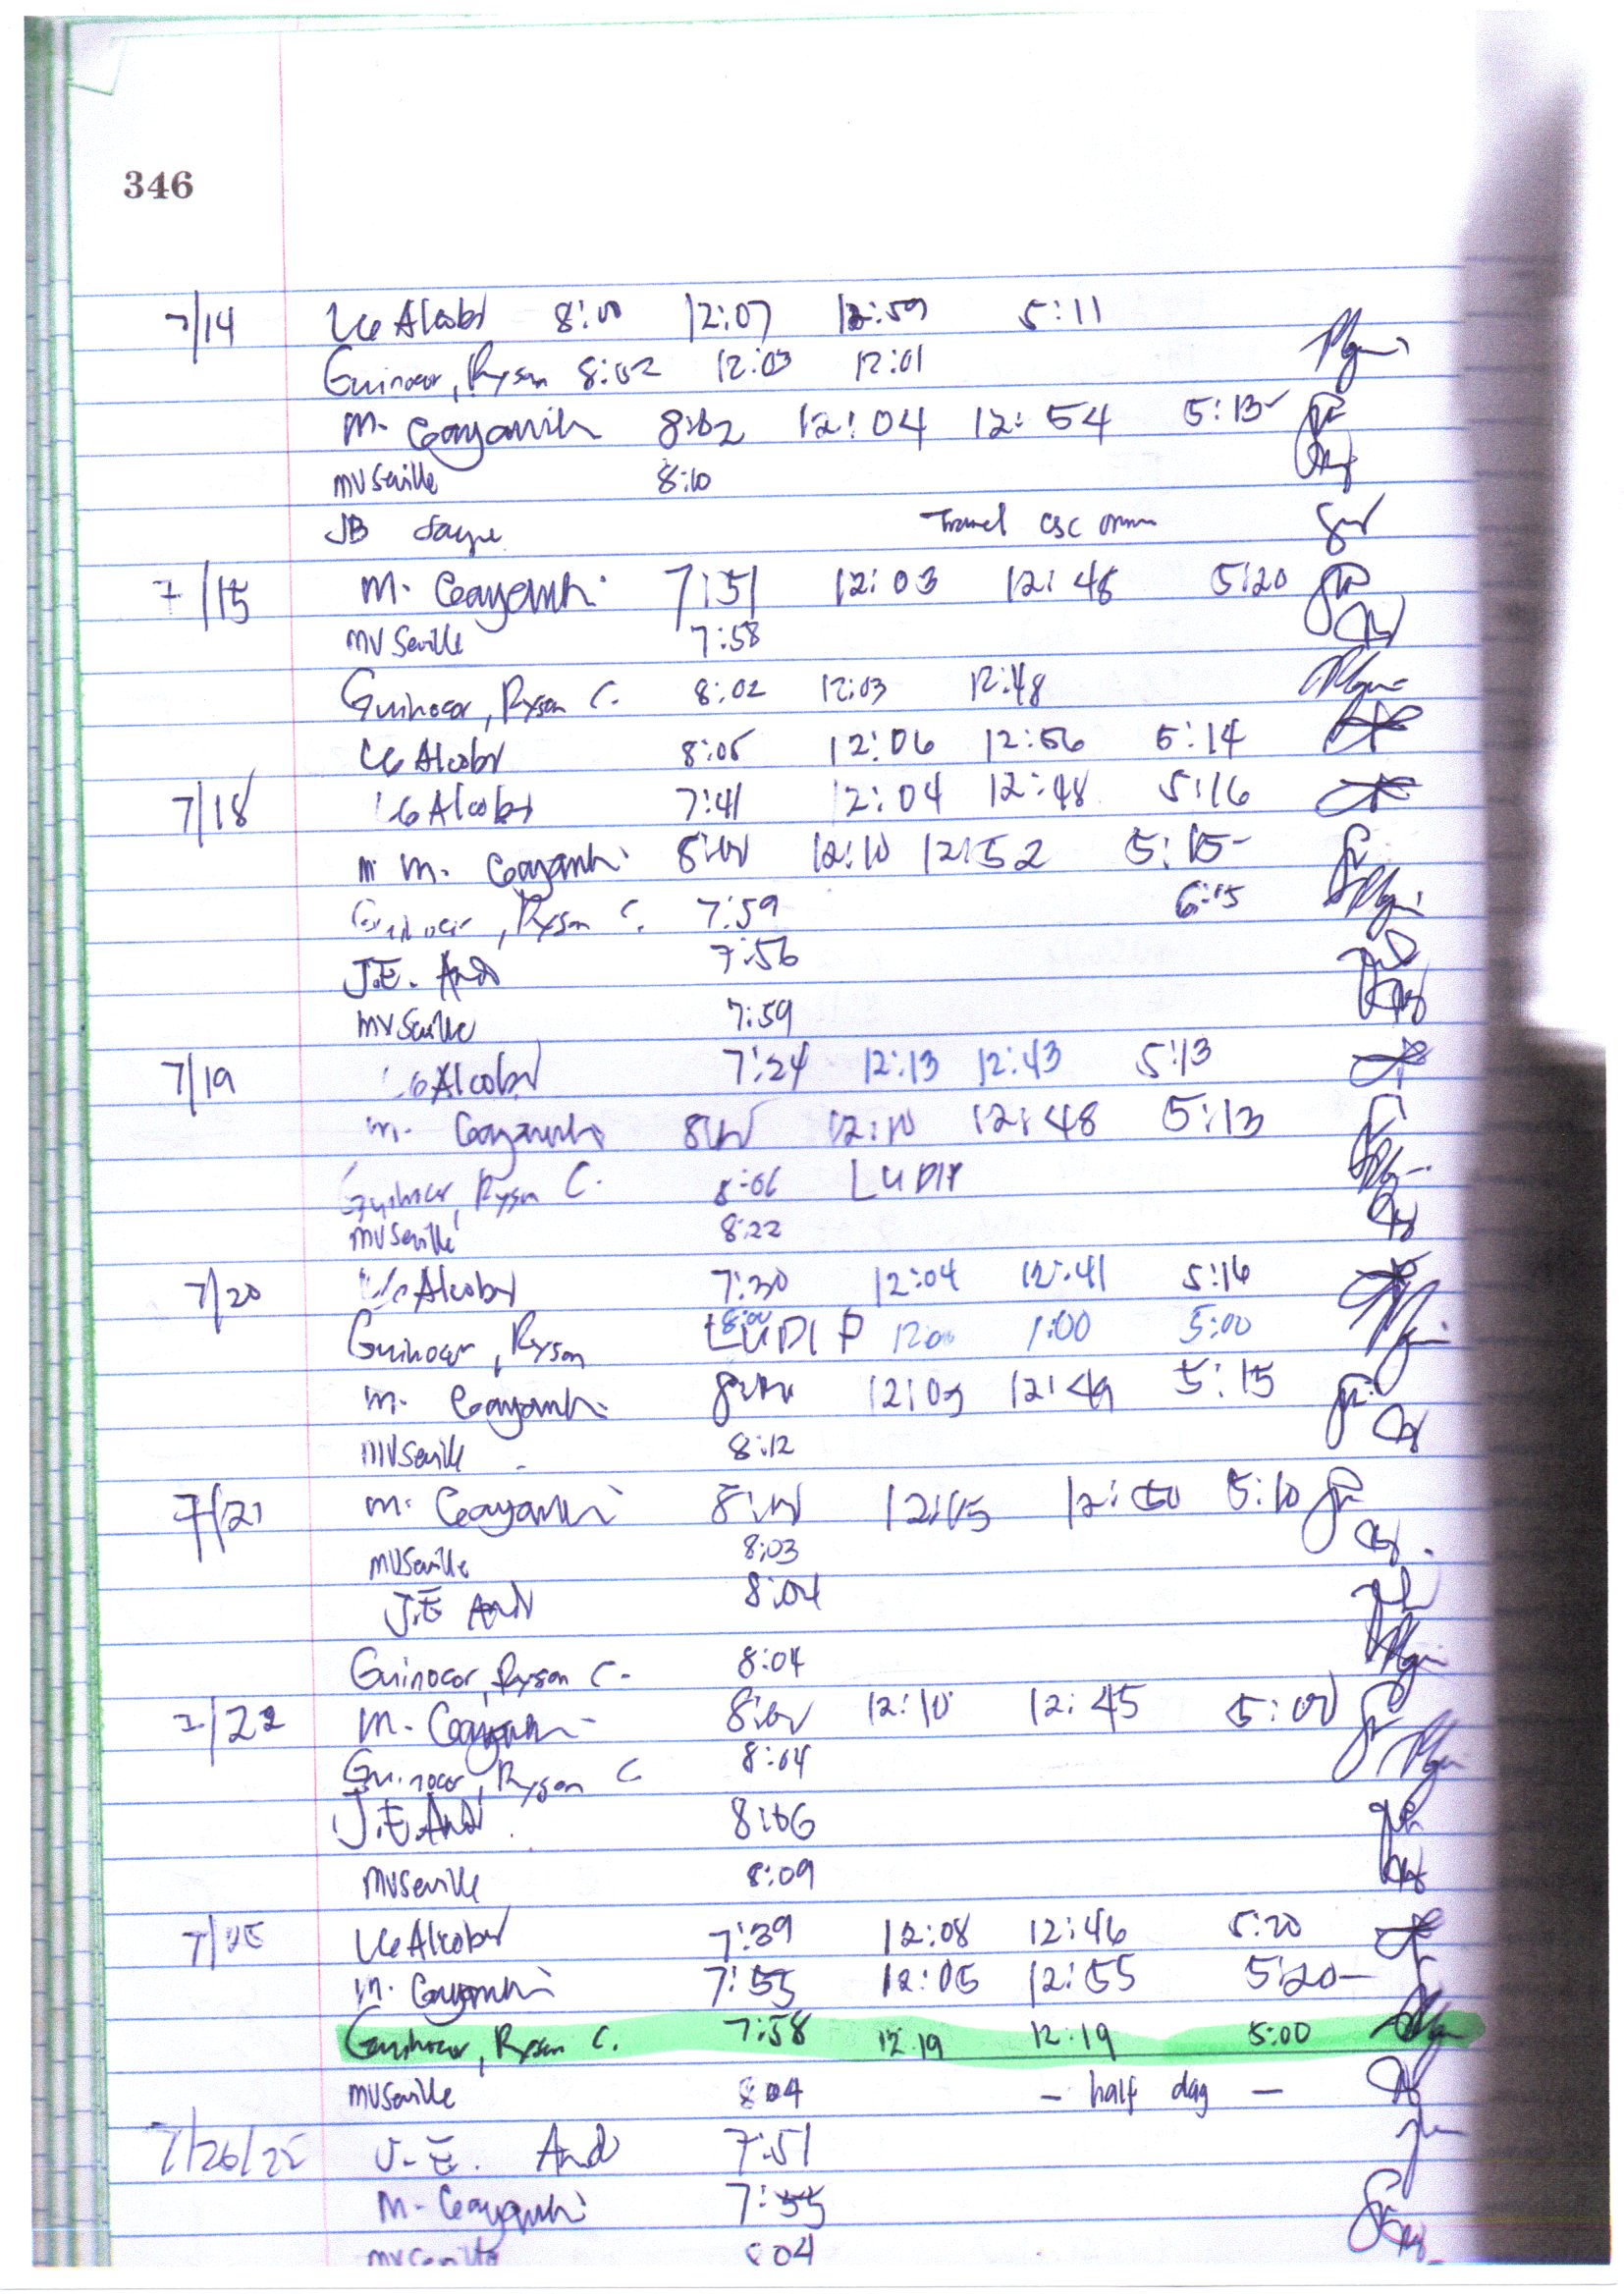 346
7/14 Alcober 8:00 12:07 12:59 5:11
Guinocor, Ryson 8:02 12:03 12:01
M. 8:02 12:04 12:54 5:13
MV Seville 8:10
JB Travel CSC
7/15 M. 7:51 12:03 12:48 5:20
MV Seville 7:58
Guinocor, Ryson C. 8:02 12:03 12:48
Alcober 8:05 12:06 12:56 5:14
7/18 Alcober 7:41 12:04 12:48 5:16
M. 8:00 12:10 12:52 5:15
Guinocor, Ryson C. 7:59 6:15
J.E. And 7:56
MV Seville 7:59
7/19 Alcober 7:24 12:13 12:43 5:13
M. 8:00 12:10 12:48 5:13
Guinocor, Ryson C. 8:06 LUDIP
MV Seville 8:22
7/20 Alcober 7:30 12:04 12:41 5:16
Guinocor, Ryson 8:00 LUDIP 12:00 1:00 5:00
M. 8:00 12:05 12:49 5:15
MV Seville 8:12
7/21 M. 8:00 12:05 12:50 5:10
MV Seville 8:03
J.E And 8:04
Guinocor, Ryson C. 8:04
7/22 M. 8:00 12:10 12:45 5:00
Guinocor, Ryson C 8:04
J.E. And 8:06
MV Seville 8:09
Alcober 7:39 12:08 12:46 5:20
M. 7:55 12:05 12:55 5:20
Guinocor, Ryson C. 7:58 12:19 12:19 5:00
MV Seville 8:04 - half day -
7/26/22 J.E. And 7:51
M. 7:55
MV Seville 8:04